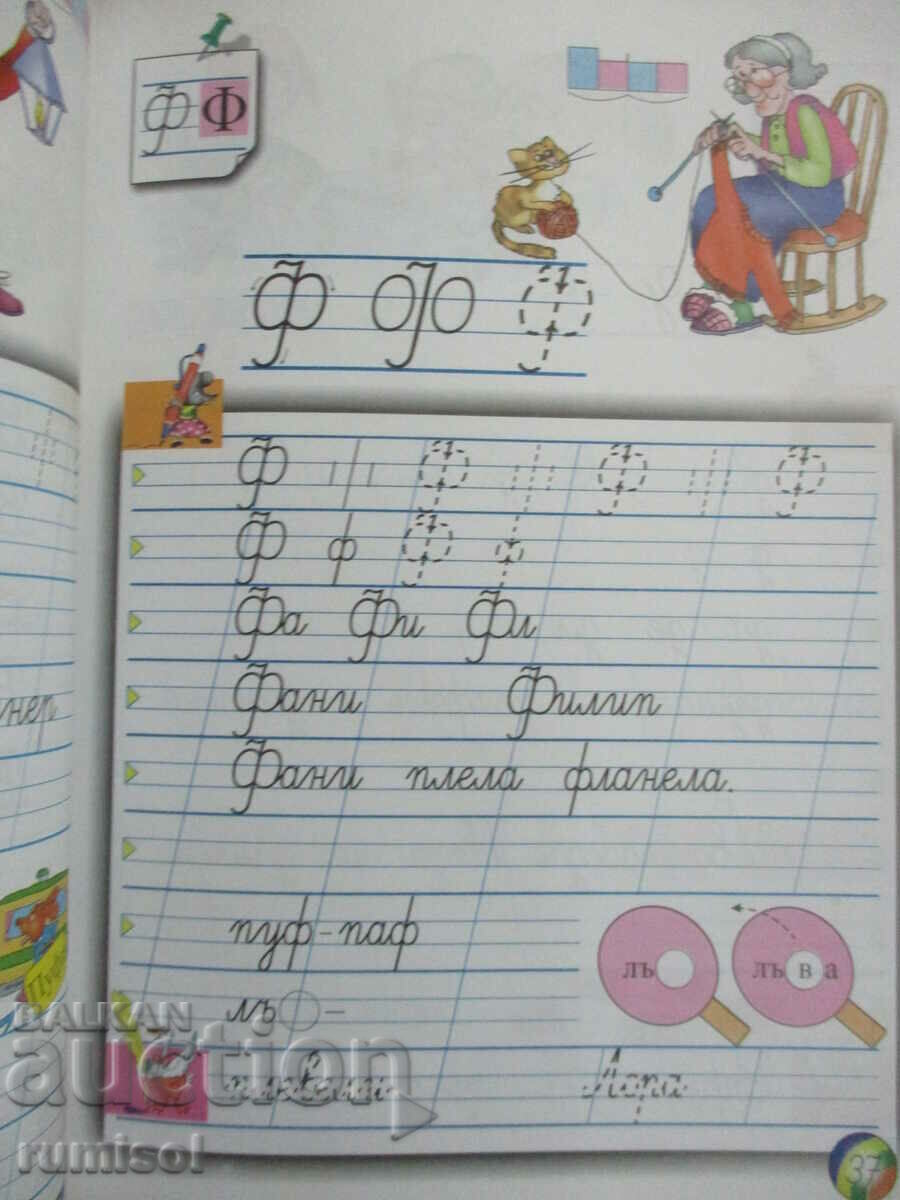 ф Ф
Ф Ф
Ф Ф Ф Ф
Ф ф Ф ф
Фа Фи Фл
Фани Филип
нер
Фани плела фланела.
пуф-паф
лъ лъ в а
лъ -
Лора
37
BALKAN
auction
rumisol